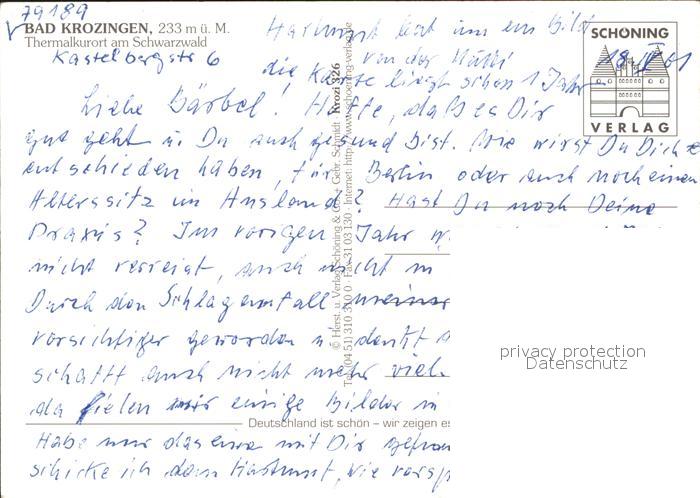 79189
BAD KROZINGEN, 233 m ü. M.
Thermalkurort am Schwarzwald
Kastelbergstr 6
Hartmut hat um ein Bild
von der
die Karte liegt schon 1 Jahr
18. V 01
SCHÖNING
VERLAG
Liebe Bärbel! Hoffe, daß es Dir
gut geht u. Du auch gesund bist. Wie wirst Du Dich
entschieden haben, für Berlin oder auch noch einen
Alterssitz im Ausland? Hast Du noch Deine
Praxis? Im vorigen Jahr
nicht verreist, auch nicht in
Durch den Schlaganfall meines
vorsichtiger geworden u. denkt
schafft auch nicht mehr viel
da fielen mir einige Bilder in
Deutschland ist schön – wir zeigen es
Habe nur das eine mit Dir
schicke ich dann Hartmut, wie
© Herst. u. Verlag Schöning & Co. + Gebr. Schmidt · Krozi 326
Tel. (04 51) 310 31 0 0 · Fax 31 03 130 · Internet: http://www.schoening-verlag.de
privacy protection
Datenschutz